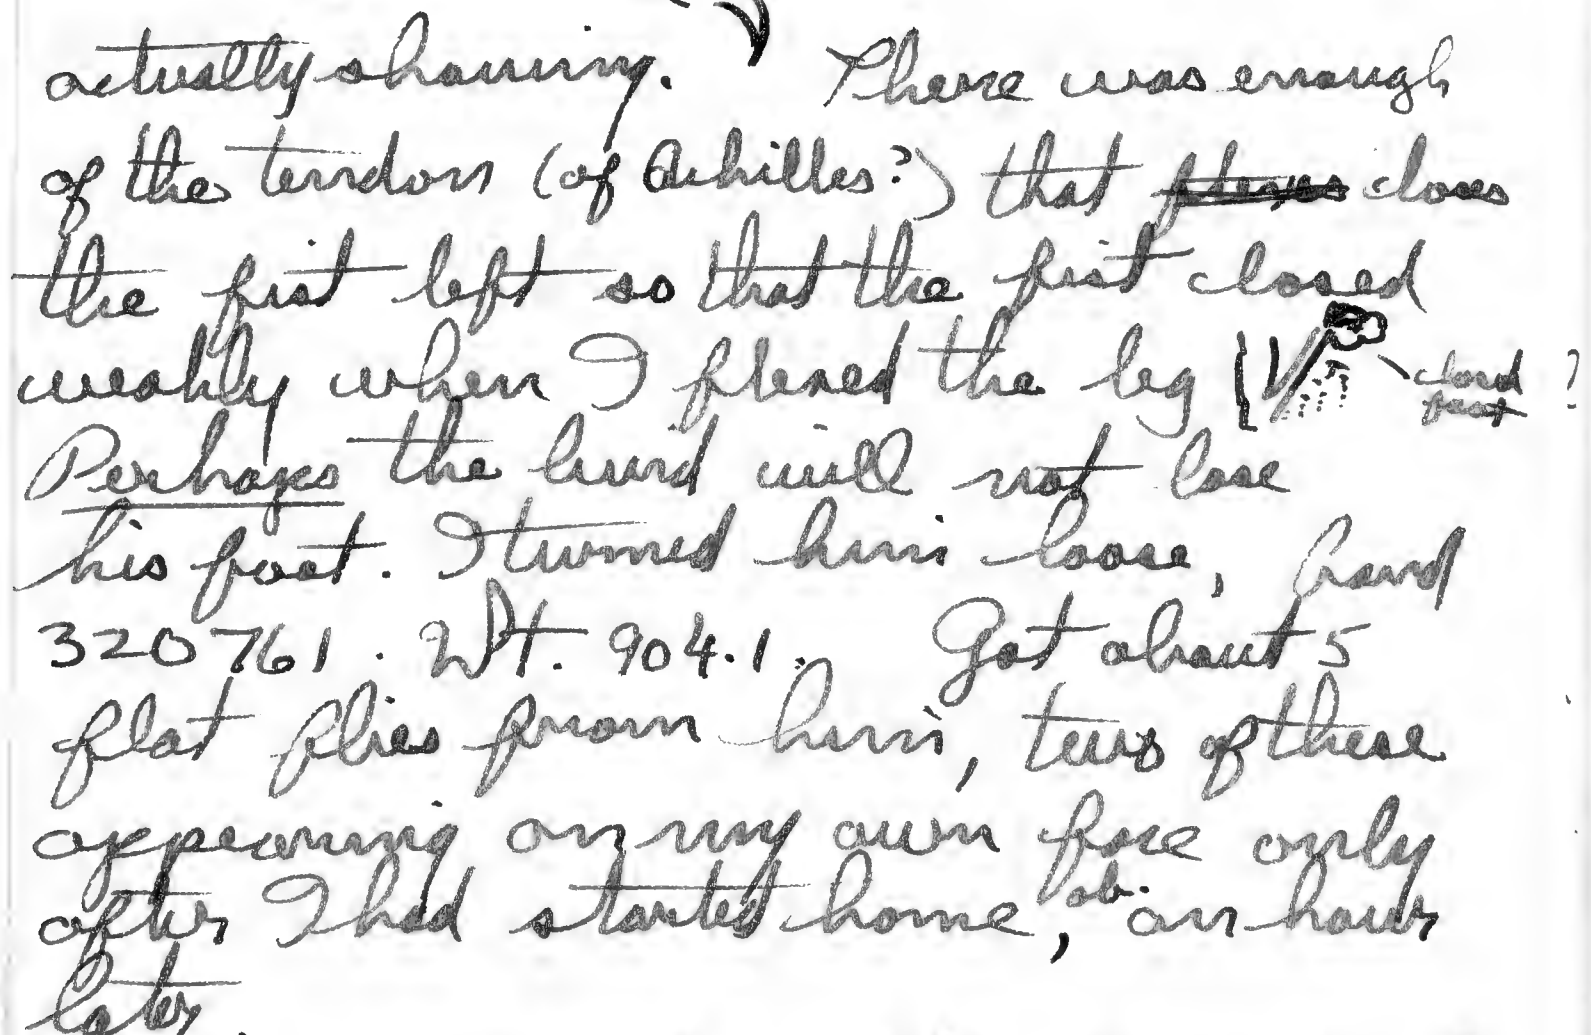 actually showing. There was enough
of the tendon (of Achilles?) that flexes closes
the fist left so that the fist closed
weakly when I flexed the leg
Perhaps the bird will not lose
his foot. I turned him loose, band
320761. Wt. 904.1. Got about 5
flat flies from him, two of these
appearing on my own face only
after I had started home, ab. an hour
later.